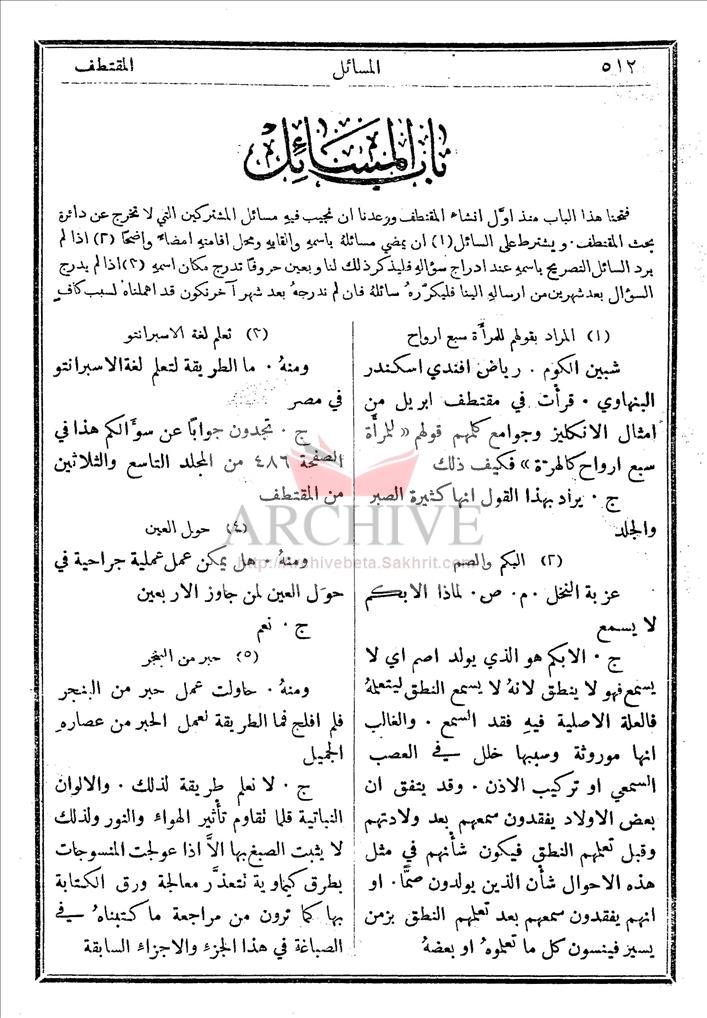 ٥١٢ المسائل المقتطف
باب المسائل
فتحنا هذا الباب منذ اول انشاء المقتطف ووعدنا ان نجيب فيه مسائل المشتركين التي لا تخرج عن دائرة
بحث المقتطف. ويشترط على السائل (١) ان يمضي مسائلهُ باسمه والقابه ومحل اقامته امضاءً واضحًا (٢) اذا لم
يرد السائل التصريح باسمه عند ادراج سؤاله فليذكر ذلك لنا ويعين حروفًا تدرج مكان اسمه (٣) اذا لم يدرج
السؤال بعد شهرين من ارساله الينا فليكرّرهُ سائلهُ فان لم ندرجهُ بعد شهر آخر نكون قد اهملناهُ لسبب كافٍ
(١) المراد بقولهم للمرأة سبع ارواح
شبين الكوم . رياض افندي اسكندر
البنهاوي . قرأت في مقتطف ابريل من
امثال الانكليز وجوامع كلمهم قولهم « للمرأة
سبع ارواح كالهرّة » فكيف ذلك
ج . يراد بهذا القول انها كثيرة الصبر
والجلد
(٢) البكم والصم
عزبة النخل . م . ص . لماذا الابكم
لا يسمع
ج . الابكم هو الذي يولد اصم اي لا
يسمع فهو لا ينطق لانهُ لا يسمع النطق ليتعلمهُ
فالعلة الاصلية فيهِ فقد السمع . والغالب
انها موروثة وسببها خلل في العصب
السمعي او تركيب الاذن . وقد يتفق ان
بعض الاولاد يفقدون سمعهم بعد ولادتهم
وقبل تعلمهم النطق فيكون شأنهم في مثل
هذه الاحوال شأن الذين يولدون صمًّا . او
انهم يفقدون سمعهم بعد تعلمهم النطق بزمن
يسير فينسون كل ما تعلموهُ او بعضهُ
(٣) تعلم لغة الاسبرانتو
ومنهُ . ما الطريقة لتعلم لغة الاسبرانتو
في مصر
ج . تجدون جوابًا عن سؤالكم هذا في
الصفحة ٤٨٦ من المجلد التاسع والثلاثين
من المقتطف
(٤) حول العين
ومنهُ . هل يمكن عمل عملية جراحية في
حوَل العين لمن جاوز الاربعين
ج . نعم
(٥) حبر من البنجر
ومنهُ . حاولت عمل حبر من البنجر
فلم افلح فما الطريقة لعمل الحبر من عصارهِ
الجميل
ج . لا نعلم طريقة لذلك . والالوان
النباتية قلما تقاوم تأثير الهواء والنور ولذلك
لا يثبت الصبغ بها الاَّ اذا عولجت المنسوجات
بطرق كيماوية تتعذَّر معالجة ورق الكتابة
بها كما ترون من مراجعة ما كتبناهُ في
الصباغة في هذا الجزء والاجزاء السابقة
ARCHIVE
http://Archivebeta.Sakhrit.com